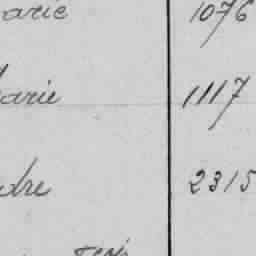 arie 1076
arie 1117
dre 2315